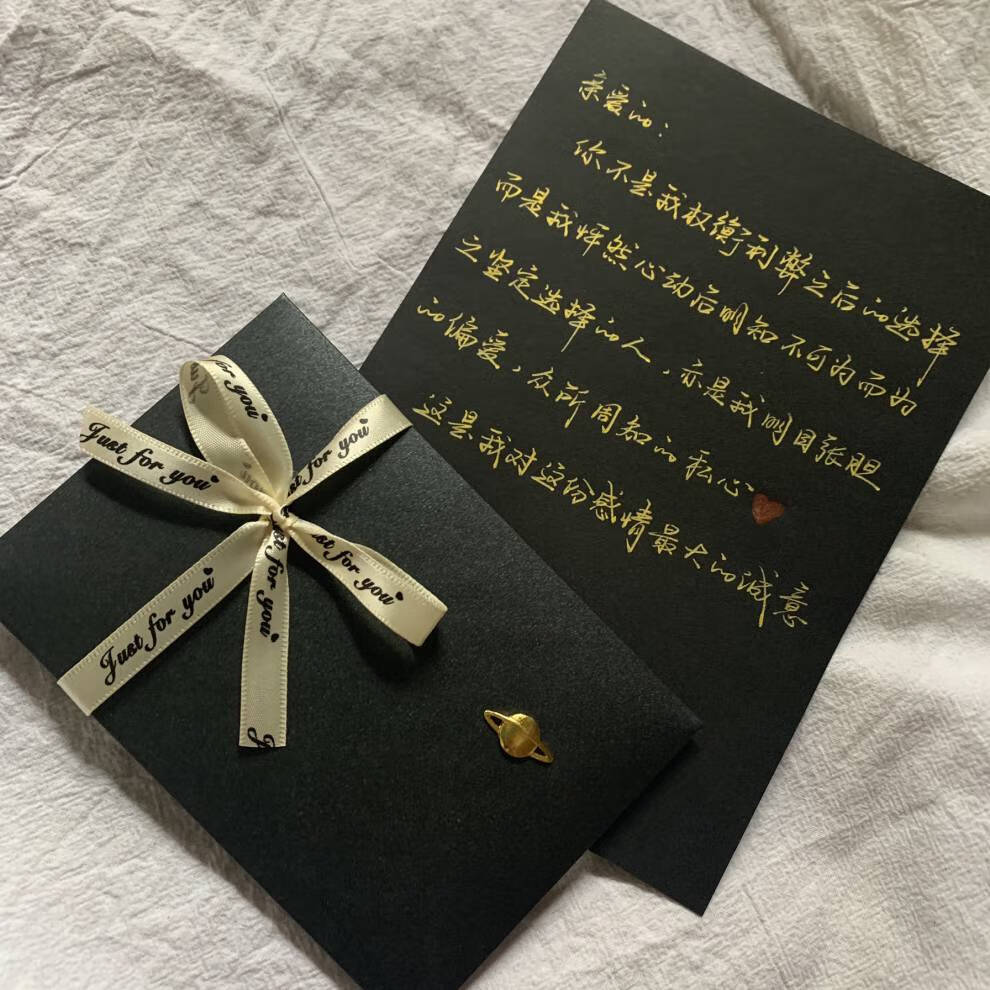 亲爱的：
你不是我权衡利弊之后的选择
而是我怦然心动后明知不可为而为
之坚定选择的人，亦是我明目张胆
的偏爱，众所周知的私心
这是我对这份感情最大的诚意
for you
Just for you
st for you
st for you
Just for you
st for you